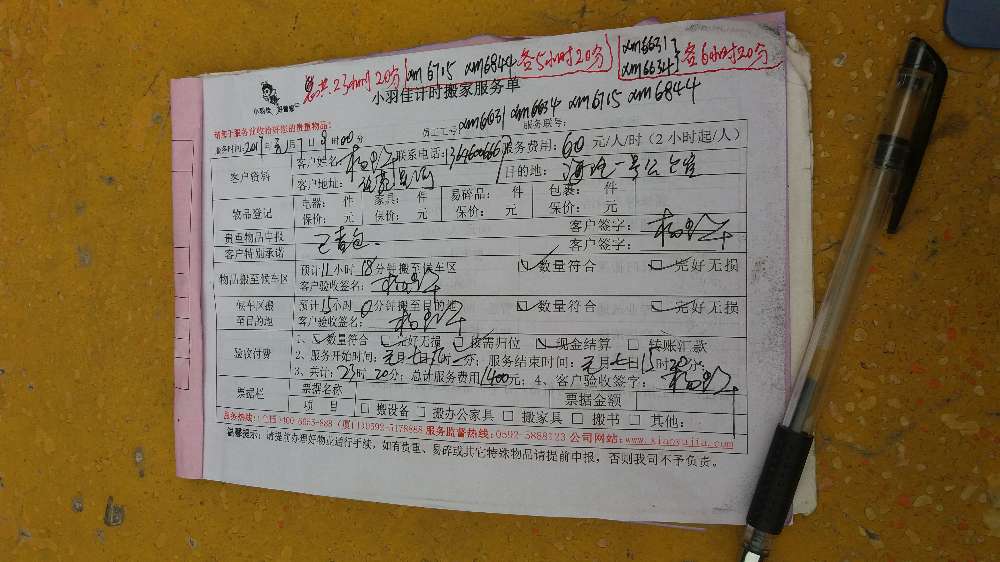 总共:23小时20分(xm6715 xm6844各5小时20分)(xm6631 xm6634)各6小时20分
小羽佳计时搬家服务单
请您于服务前收拾好您的贵重物品:
员工工号:xm6631 xm6634 xm6715 xm6844
服务账号:
服务时间:2017年元月7日9时00分
客户资料
客户姓名: 联系电话: 服务费用:60元/人/时(2小时起/人)
客户地址: 目的地:
物品登记
电器: 件 家具: 件 易碎品: 件 包裹: 件
保价: 元 保价: 元 保价: 元 保价: 元
贵重物品申报 客户签字:
客户特别承诺 已背包 客户签字:
物品搬至候车区 预计11小时18分钟搬至候车区 数量符合 完好无损
客户验收签名:
候车区搬至目的地 预计15小时0分钟搬至目的地 数量符合 完好无损
客户验收签名:
验收付费
1、数量符合 完好无损 按需归位 现金结算 转账汇款
2、服务开始时间:元月七日 时 分;服务结束时间:元月七日15时20分;
3、共计:23时20分;总计服务费用1400元;4、客户验收签字:
票据栏 票据名称 票据金额
项 目 搬设备 搬办公家具 搬家具 搬书 其他:
服务热线:全国400-6053-888 (厦门)0592-5178888 服务监督热线:0592-5888123 公司网站:www.xiaoyujia.com
温馨提示:请提前办理好物业放行手续,如有贵重、易碎或其它特殊物品请提前申报,否则我司不予负责。